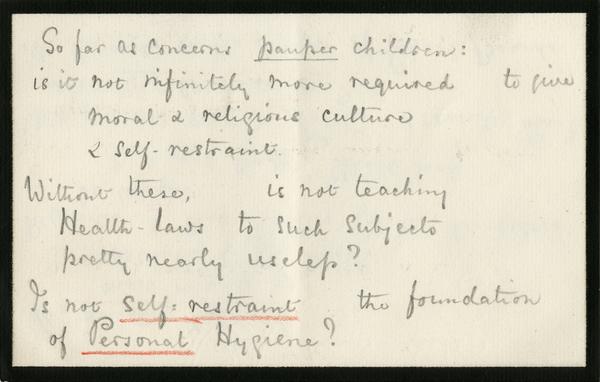 So far as concerns pauper children:
is it not infinitely more required to give
moral & religious culture
& self-restraint.
Without these, is not teaching
Health-laws to such subjects
pretty nearly useless?
Is not self-restraint the foundation
of Personal Hygiene?